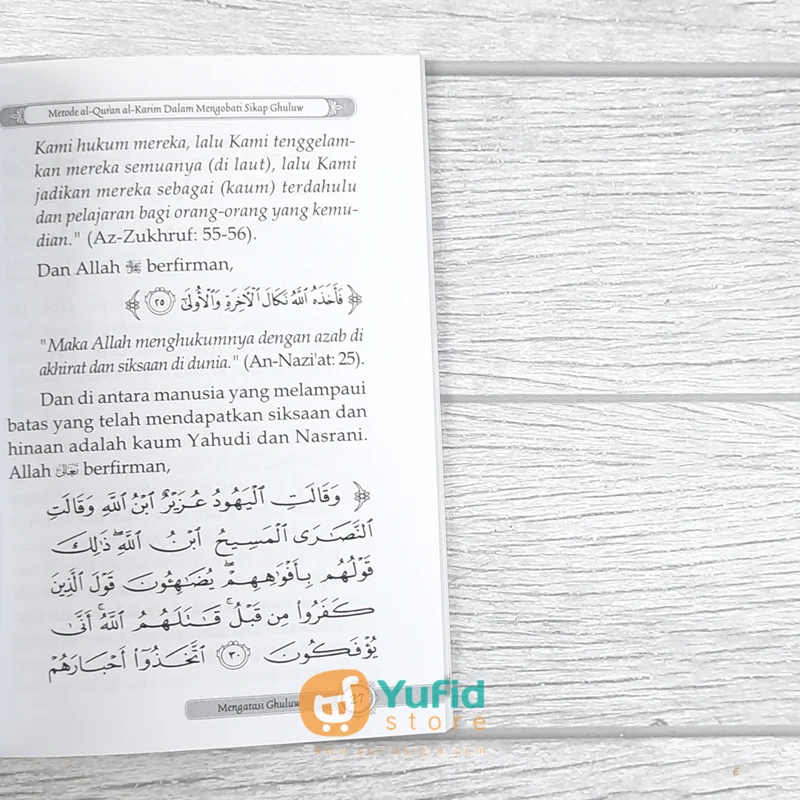 Metode al-Qur'an al-Karim Dalam Mengobati Sikap Ghuluw
Kami hukum mereka, lalu Kami tenggelam-
kan mereka semuanya (di laut), lalu Kami
jadikan mereka sebagai (kaum) terdahulu
dan pelajaran bagi orang-orang yang kemu-
dian." (Az-Zukhruf: 55-56).
Dan Allah ﷻ berfirman,
﴿ فَأَخَذَهُ ٱللَّهُ نَكَالَ ٱلْـَٔاخِرَةِ وَٱلْأُولَىٰٓ ٢٥ ﴾
"Maka Allah menghukumnya dengan azab di
akhirat dan siksaan di dunia." (An-Nazi'at: 25).
Dan di antara manusia yang melampaui
batas yang telah mendapatkan siksaan dan
hinaan adalah kaum Yahudi dan Nasrani.
Allah تَعَالَى berfirman,
﴿ وَقَالَتِ ٱلْيَهُودُ عُزَيْرٌ ٱبْنُ ٱللَّهِ وَقَالَتِ
ٱلنَّصَـٰرَى ٱلْمَسِيحُ ٱبْنُ ٱللَّهِ ۖ ذَٰلِكَ
قَوْلُهُم بِأَفْوَٰهِهِمْ ۖ يُضَـٰهِـُٔونَ قَوْلَ ٱلَّذِينَ
كَفَرُوا۟ مِن قَبْلُ ۚ قَـٰتَلَهُمُ ٱللَّهُ ۚ أَنَّىٰ
يُؤْفَكُونَ ٣٠ ٱتَّخَذُوٓا۟ أَحْبَارَهُمْ
Mengatasi Ghuluw
27
Yufid
store